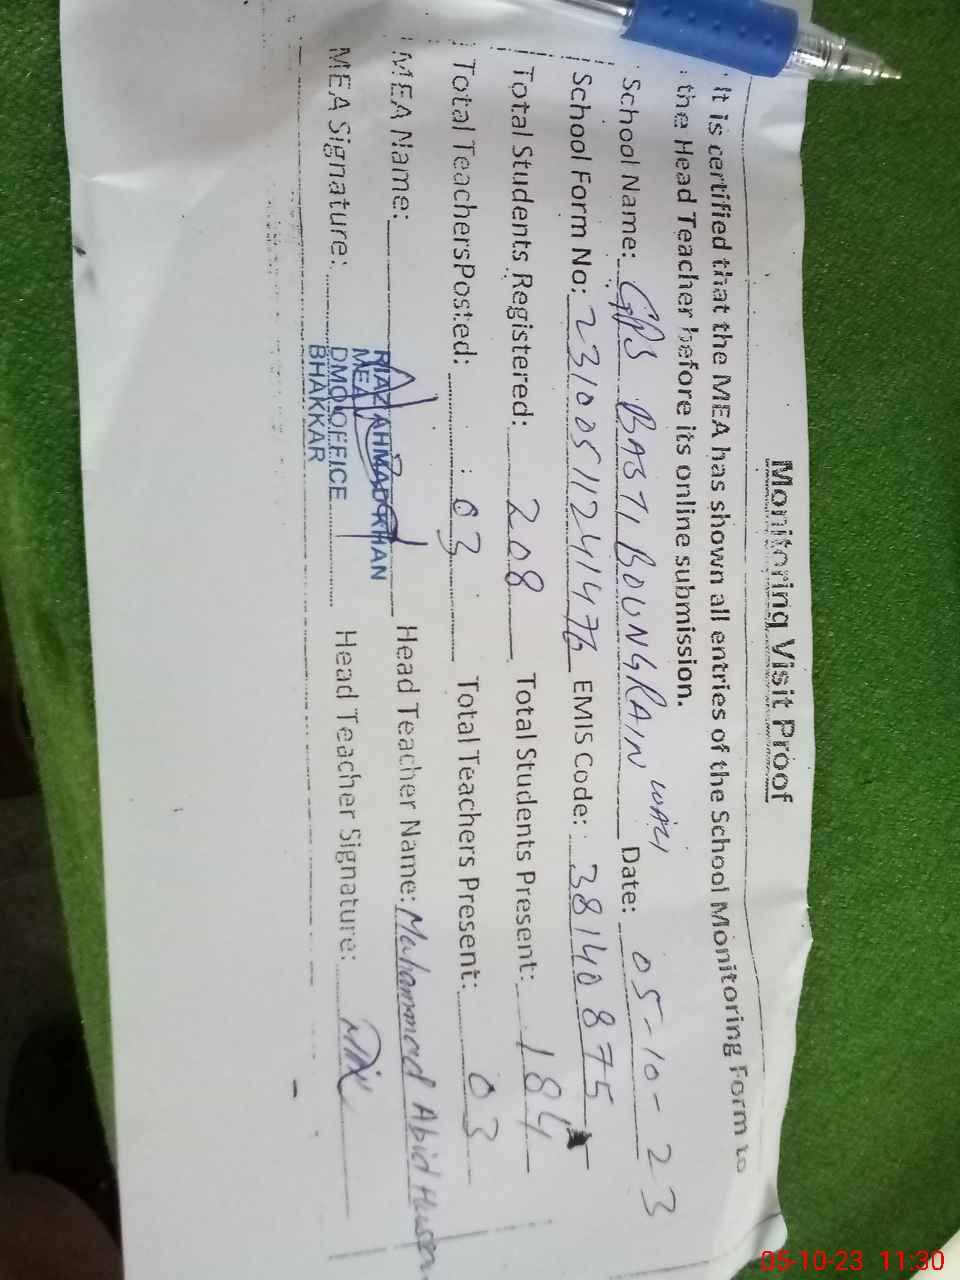 Monitoring Visit Proof
It is certified that the MEA has shown all entries of the School Monitoring Form to
the Head Teacher before its online submission.
School Name: GPS BASTI BOUNGRAIN WALI Date: 05-10-23
School Form No: 2310051124147 EMIS Code: 38140875
Total Students Registered: 208 Total Students Present: 184
Total TeachersPosted: 03 Total Teachers Present: 03
MEA Name: Head Teacher Name: Muhammad Abid Hussain
MEA Signature: Head Teacher Signature:
RIAZ AHMAD KHAN
MEA
DMO OFFICE
BHAKKAR
05-10-23 11:30